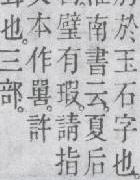 於玉石字也。
南書云。夏后
璧有瑕。請指
本作許
也。三部。